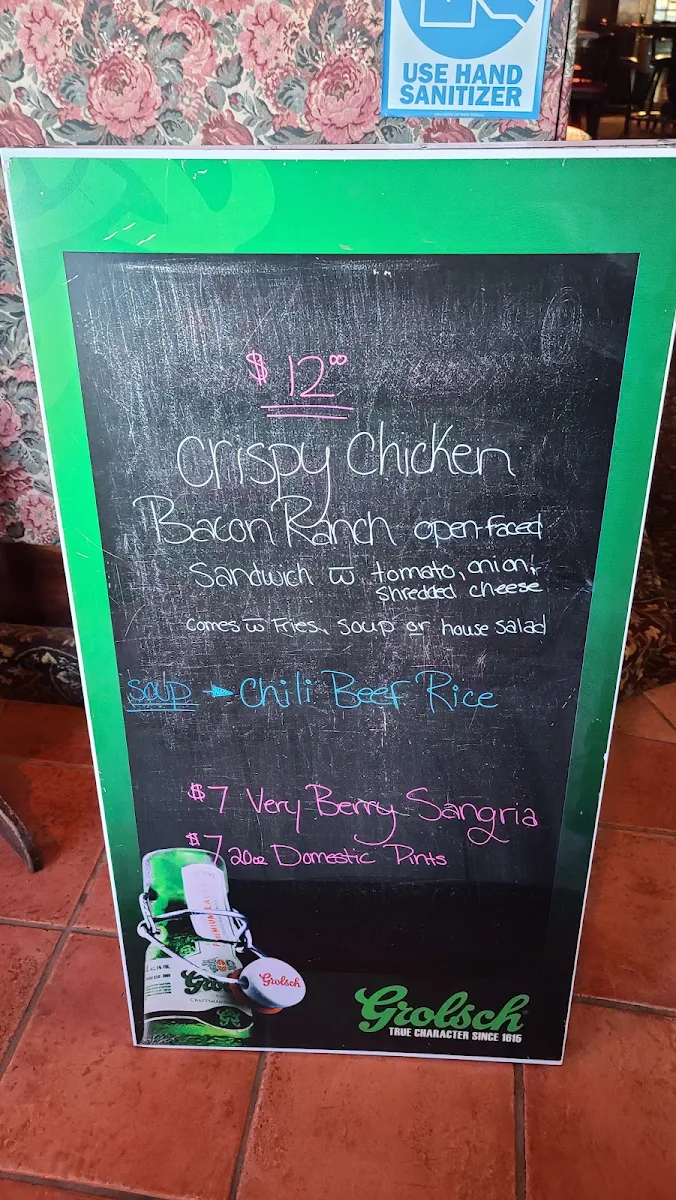 USE HAND
SANITIZER
$ 12⁰⁰
Crispy Chicken
Bacon Ranch open-faced
Sandwich w tomato, onion,
shredded cheese
Comes w Fries, Soup or house salad
Soup → Chili Beef Rice
$7 Very Berry Sangria
$7 20oz Domestic Pints
Grolsch
Grolsch
TRUE CHARACTER SINCE 1615